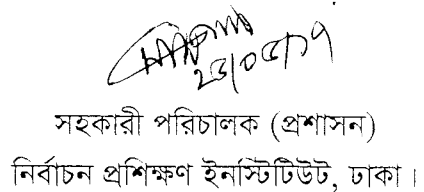 সহকারী পরিচালক (প্রশাসন)
নির্বাচন প্রশিক্ষণ ইনস্টিটিউট, ঢাকা।